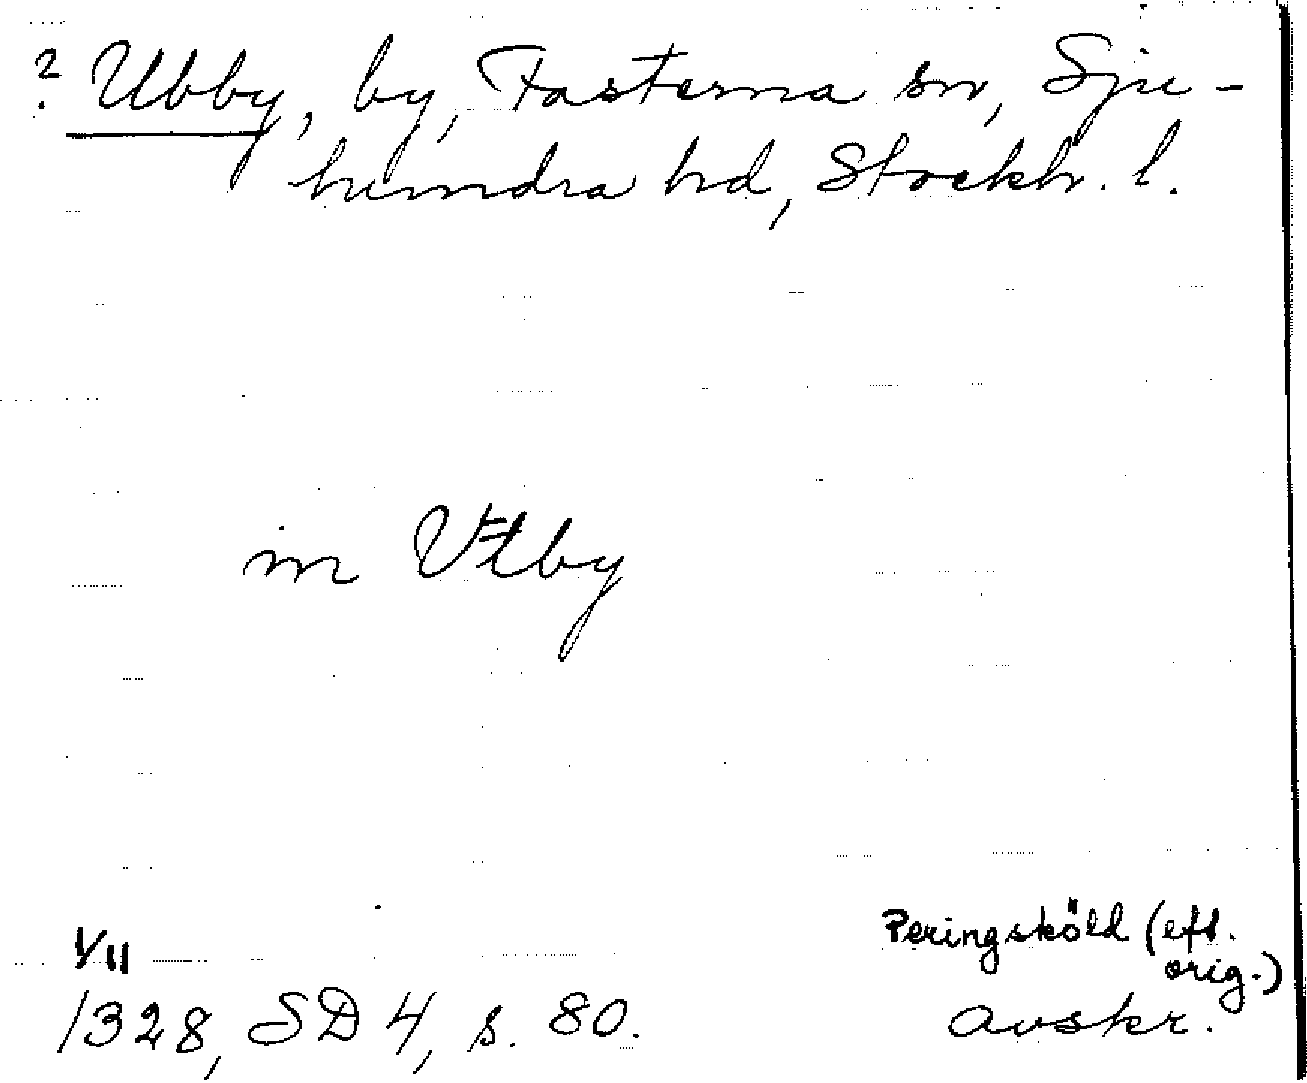 ? Ubby, by, Fasterna sn, Sju-
hundra hd, Stockh. l.
in Vtby
1/11
1328, SD 4, s. 80.
Peringsköld (eft.
orig.)
avskr.